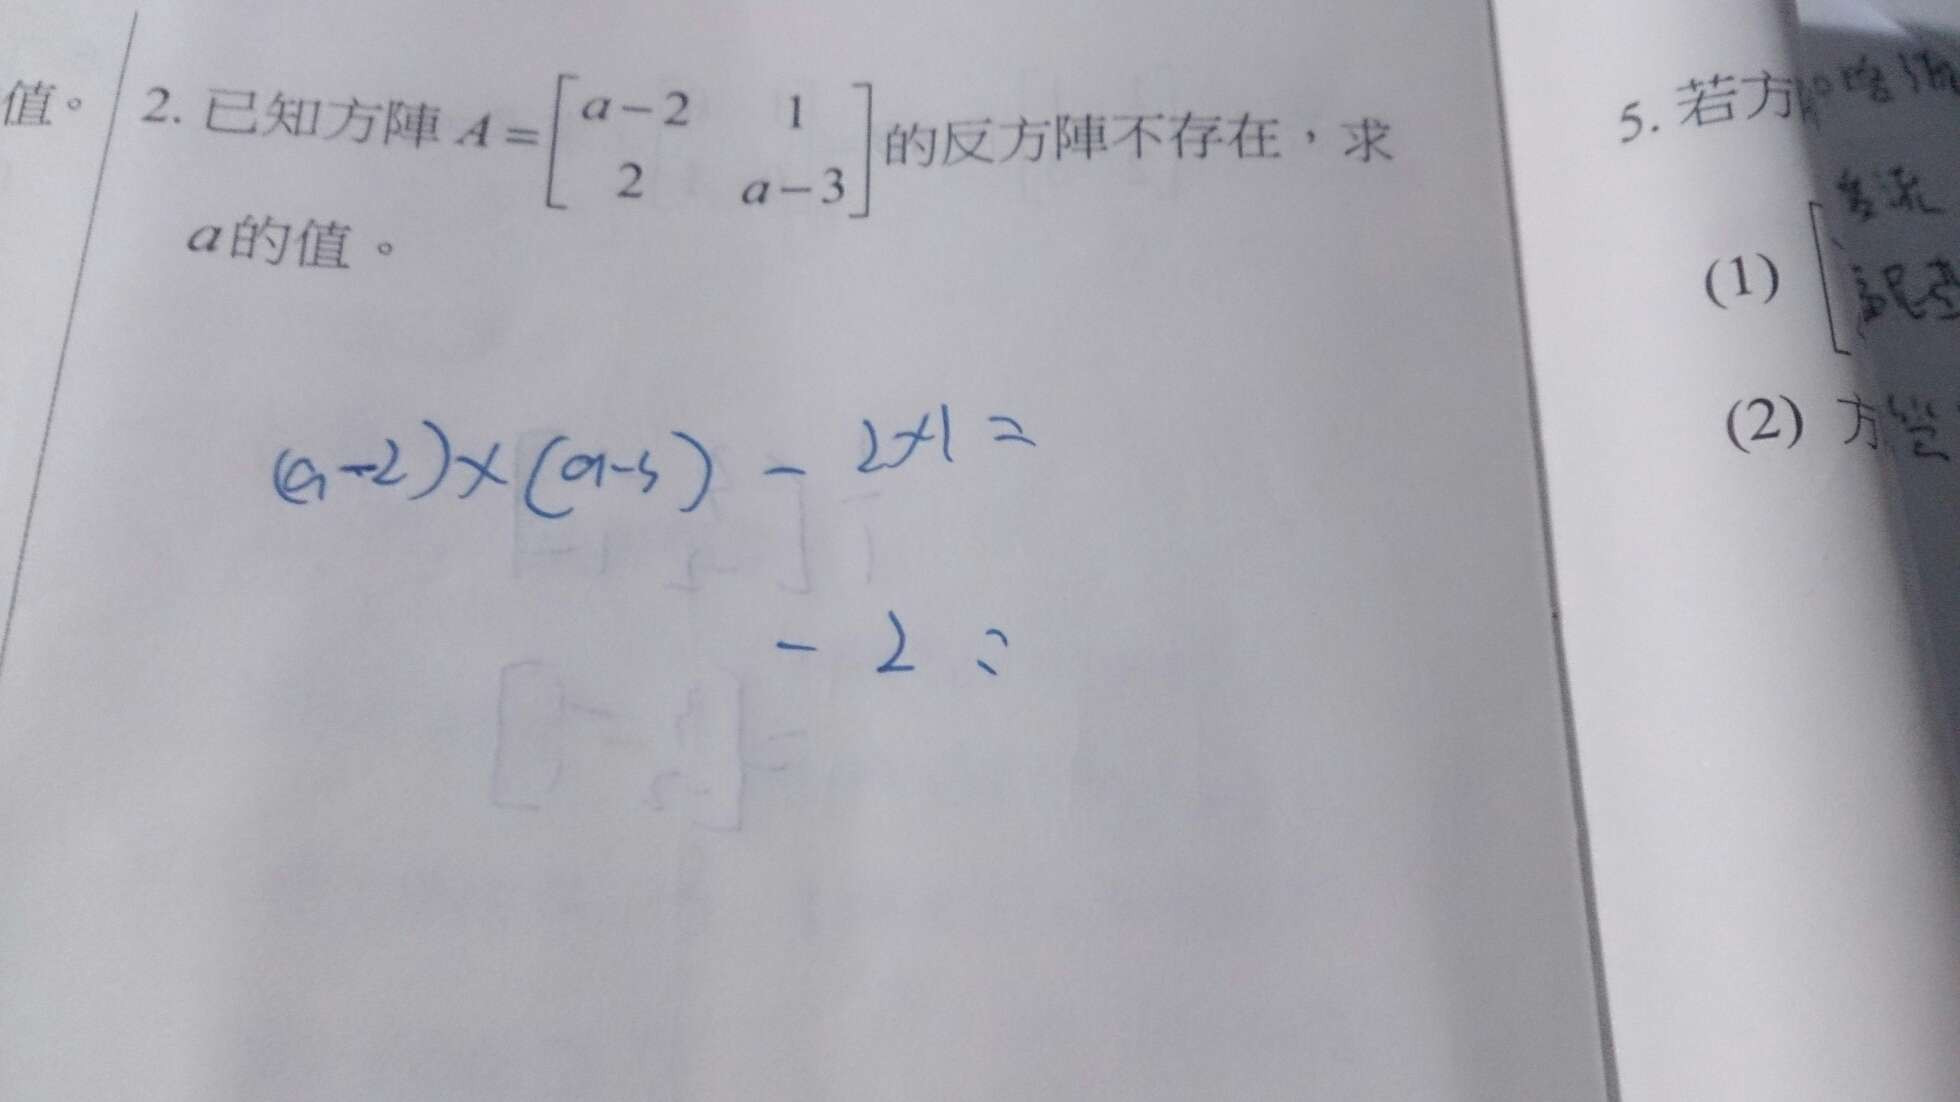 值。
2. 已知方陣 A = [a−2 1
2 a−3] 的反方陣不存在，求
a的值。
(a-2)×(a-3) - 2×1 =
- 2 =
5. 若方
(1)
(2) 方